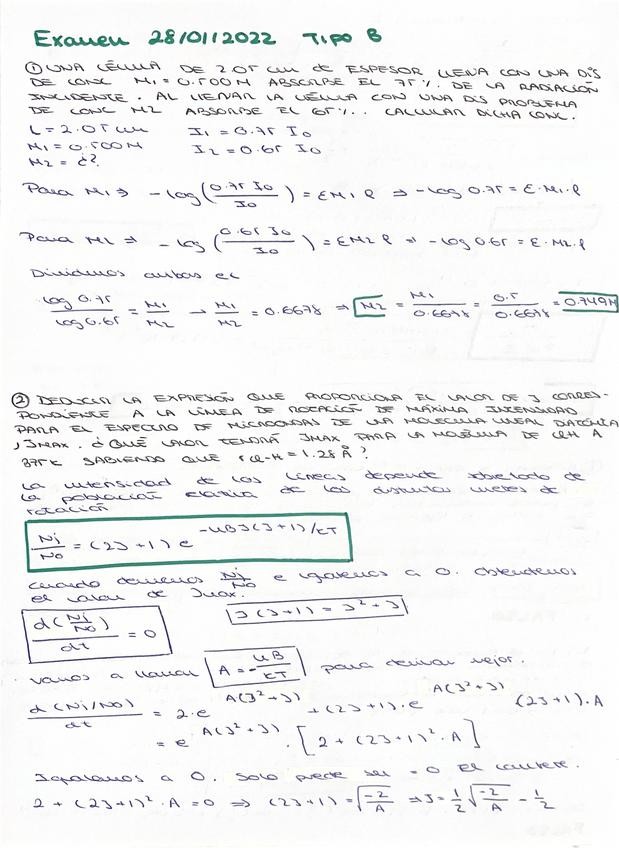 Examen 28/01/2022 TIPO B
① UNA CÉLULA DE 2.05 cm de ESPESOR LLENA CON UNA DIS
DE CONC M1 = 0.500M ABSORBE EL 75% DE LA RADIACIÓN
INCIDENTE. AL LLENAR LA CÉLULA CON UNA DIS PROBLEMA
DE CONC M2 ABSORBE EL 65%. CALCULAR DICHA CONC.
L = 2.05 cm I1 = 0.75 I0
M1 = 0.500M I2 = 0.65 I0
M2 = ¿?
Para M1 ⇒ -log(0.75 I0/I0) = ε M1 l ⇒ -log 0.75 = ε·M1·l
Para M2 ⇒ -log(0.65 I0/I0) = ε M2 l ⇒ -log 0.65 = ε·M2·l
Dividimos ambas ec
log 0.75/log 0.65 = M1/M2 → M1/M2 = 0.6678 ⇒ M2 = M1/0.6678 = 0.5/0.6678 = 0.749M
② DEDUCIR LA EXPRESIÓN QUE PROPORCIONA EL VALOR DE J CORRES-
PONDIENTE A LA LÍNEA DE ROTACIÓN DE MÁXIMA INTENSIDAD
PARA EL ESPECTRO DE MICROONDAS DE UNA MOLECULA LINEAL DIATÓMICA
, JMAX. ¿QUÉ VALOR TENDRÁ JMAX PARA LA MOLÉCULA DE ClH A
375K SABIENDO QUE rCl-H = 1.28 Å?
La intensidad de las líneas depende sobre todo de
la población relativa de los distintos niveles de
rotación
Nj/N0 = (2J+1) e^(-hBJ(J+1)/kT)
cuando derivemos Nj/N0 e igualemos a 0. Obtendremos
el valor de Jmax.
d(Nj/N0)/dt = 0 J(J+1) = J²+J
Vamos a llamar A = -hB/kT para derivar mejor.
d(Nj/N0)/dt = 2·e^(A(J²+J)) + (2J+1)·e^(A(J²+J)) (2J+1)·A
= e^(A(J²+J)) · [2 + (2J+1)²·A]
Igualamos a 0. Solo puede ser = 0 El corchete.
2 + (2J+1)²·A = 0 ⇒ (2J+1) = √(-2/A) ⇒ J = 1/2 √(-2/A) - 1/2